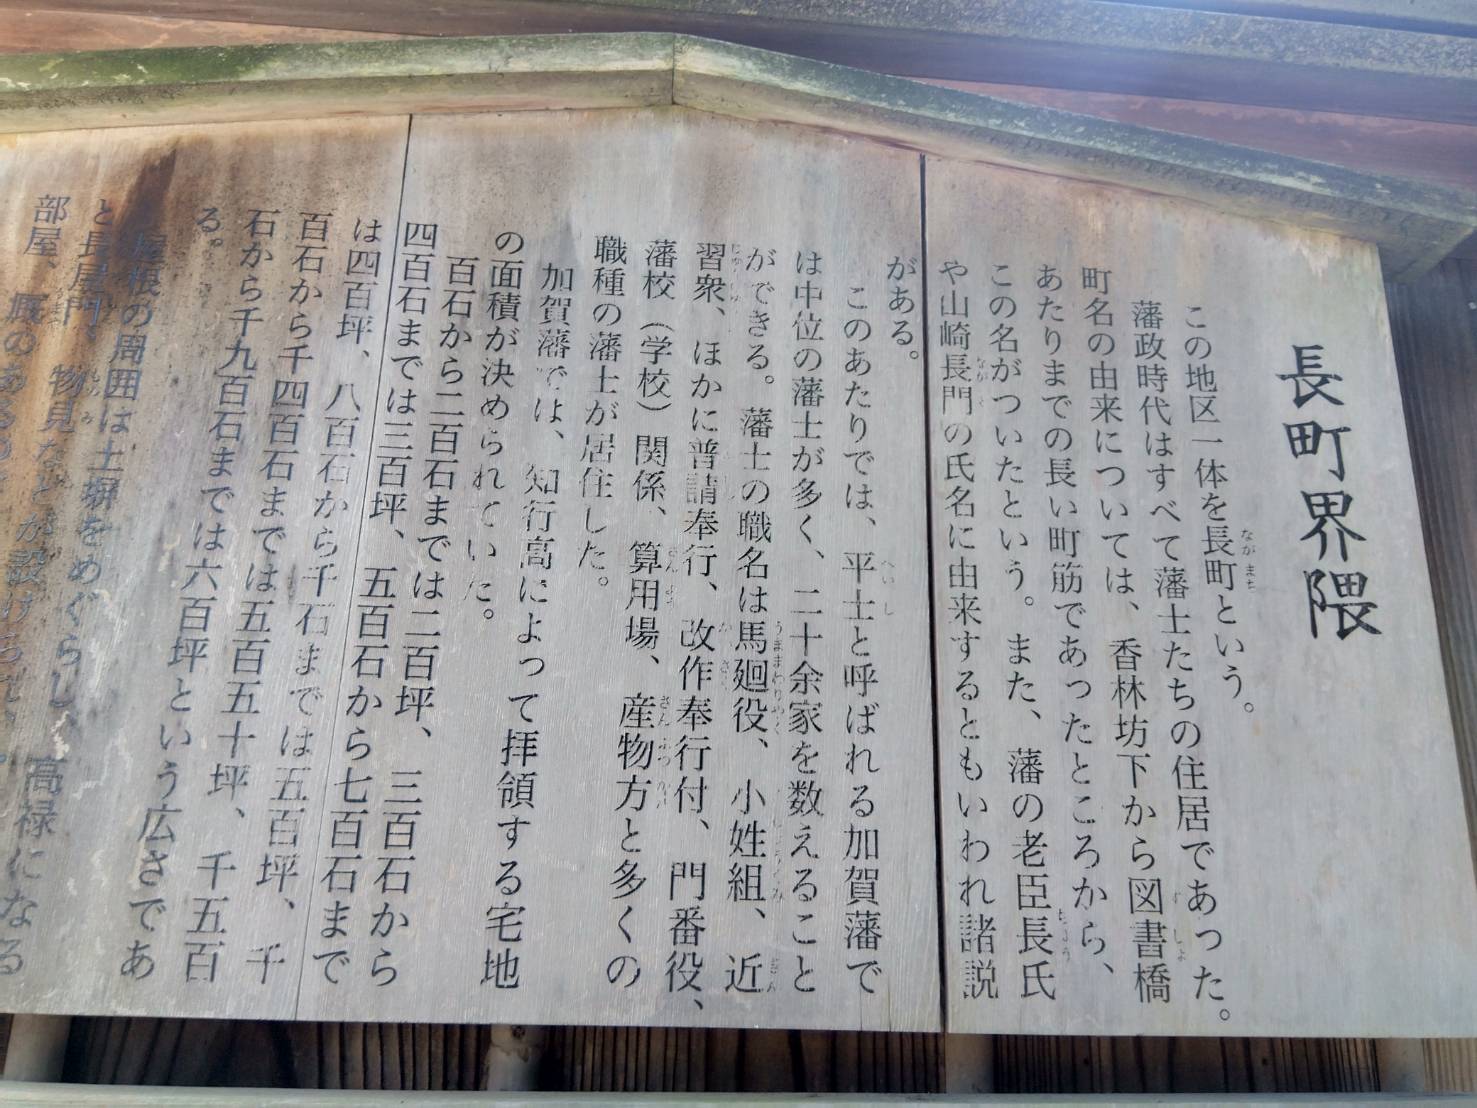 長町界隈
この地区一体を長町という。
藩政時代はすべて藩士たちの住居であった。
町名の由来については、香林坊下から図書橋
あたりまでの長い町筋であったところから、
この名がついたという。また、藩の老臣長氏
や山崎長門の氏名に由来するともいわれ諸説
がある。
このあたりでは、平士と呼ばれる加賀藩で
は中位の藩士が多く、二十余家を数えること
ができる。藩士の職名は馬廻役、小姓組、近
習衆、ほかに普請奉行、改作奉行付、門番役、
藩校（学校）関係、算用場、産物方と多くの
職種の藩士が居住した。
加賀藩では、知行高によって拝領する宅地
の面積が決められていた。
百石から二百石までは二百坪、三百石から
四百石までは三百坪、五百石から七百石まで
は四百坪、八百石から千石までは五百坪、千
百石から千四百石までは五百五十坪、千五百
石から千九百石までは六百坪という広さであ
る。
屋根の周囲は土塀をめぐらし、高禄になる
と長屋門、物見などが設けられ
部屋、厩のある